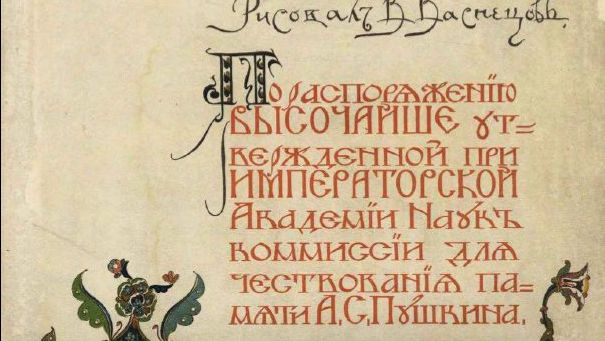 Рисовалъ В. Васнецовъ.
По распоряженію
ВЫСОЧАЙШЕ ут=
вержденной при
ИМПЕРАТОРСКОЙ
Академіи Наукъ
коммиссіи для
чествованія па=
мяти А.С.Пушкина.